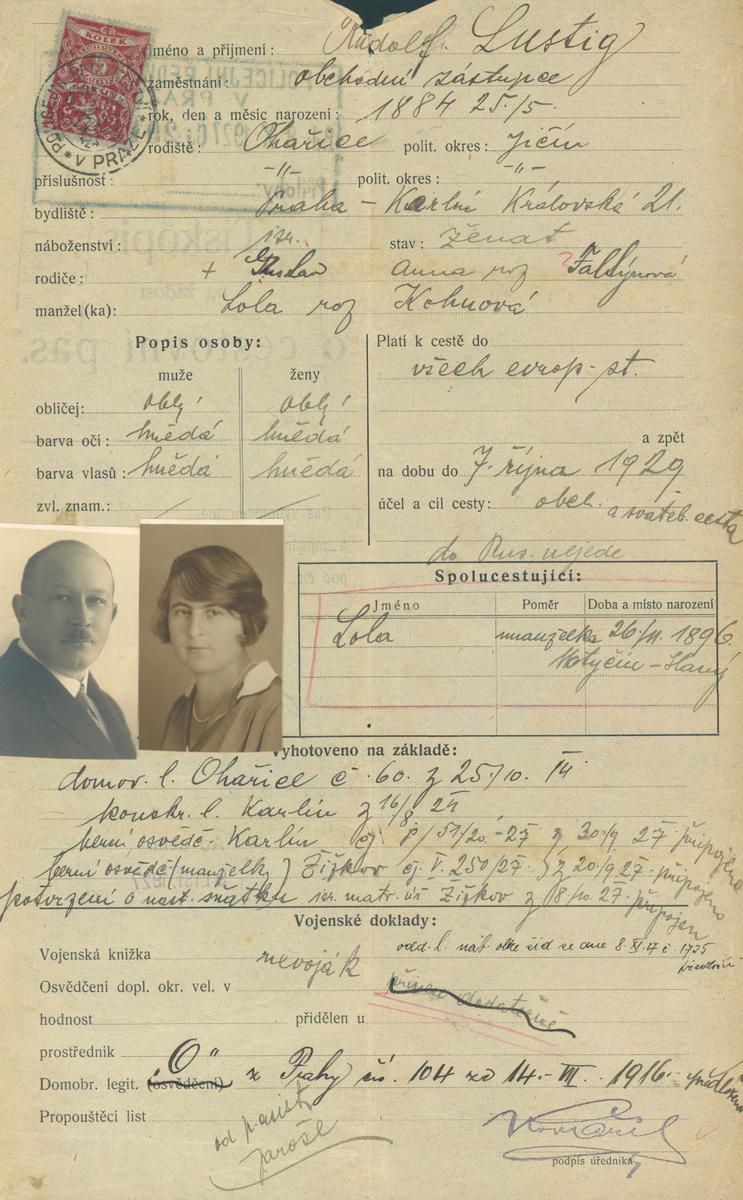 KOLEK
V PRAZE
Jméno a příjmení: Rudolf Lustig
zaměstnání: obchodní zástupce
rok, den a měsíc narození: 1884 25/5.
rodiště: Ohařice polit. okres: Jičín
příslušnost: -"- polit. okres: -"-
bydliště: Praha - Karlín Královská 21.
náboženství: isr. stav: ženat
rodiče: + Gustav Anna roz ? Faltýnová
manžel(ka): Lola roz Kohnová
Popis osoby:
muže ženy
obličej: oblý oblý
barva očí: hnědá hnědá
barva vlasů: hnědá hnědá
zvl. znam.:
Platí k cestě do
všech evrop. st.
a zpět
na dobu do 7. října 1929
účel a cíl cesty: obch. a svateb. cesta
do Rus. nejede
Spolucestující:
Jméno Poměr Doba a místo narození
Lola manželka 26/II. 1896.
Vyhotoveno na základě:
domov. l. Ohařice č. 60. z 25/10.
konskr. l. Karlín z 16/8 24
berní osvědč. Karlín čj 51/20.-27 z 30/9 27 připojeno
berní osvědč. (manželky) Žižkov čj. V. 250/27. z 20/9.27. připojeno
potvrzení o nast. sňatku isr. matr. úř. Žižkov z 8/10. 27. připojen
Vojenské doklady:
odd. l. náb. žid se dne 8. č. 1725
Vojenská knížka nevoják
Osvědčení dopl. okr. vel. v dodatečně
hodnost přidělen u
prostředník
Domobr. legit. (osvědčení) "O" z Prahy čís. 104 ze 14. III. 1916
Propouštěcí list
od p. asist.
Jaroše
podpis úředníka